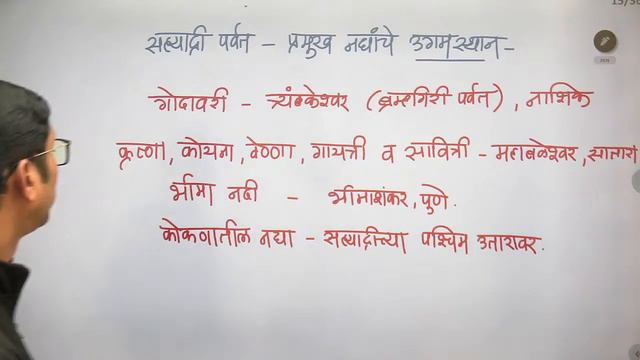 सह्याद्री पर्वत - प्रमुख नद्यांचे उगमस्थान -
गोदावरी - त्र्यंबकेश्वर (ब्रम्हगिरी पर्वत), नाशिक
कृष्णा, कोयना, वेण्णा, गायत्री व सावित्री - महाबळेश्वर, सातारा
भीमा नदी - भीमाशंकर, पुणे.
कोकणातील नद्या - सह्याद्रीच्या पश्चिम उतारावर.